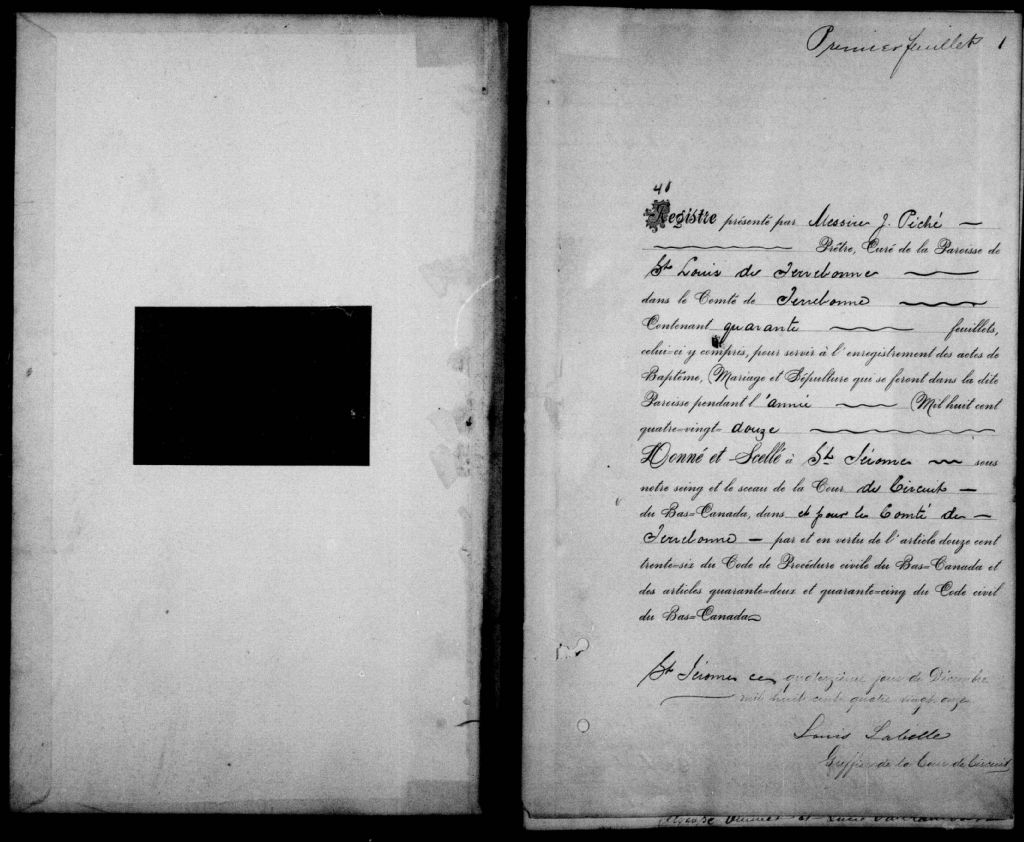 Premier feuillet 1
40
Registre présenté par Messire J. Piché
Prêtre, Curé de la Paroisse de
St Louis de Terrebonne
dans le Comté de Terrebonne
Contenant quarante feuillets,
celui=ci y compris, pour servir à l'enregistrement des actes de
Baptême, Mariage et Sépulture qui se feront dans la dite
Paroisse pendant l'année Mil huit cent
quatre=vingt= douze
Donné et Scellé à St Jérome sous
notre seing et le sceau de la Cour de Circuit
du Bas=Canada, dans et pour le Comté de
Terrebonne par et en vertu de l'article douze cent
trente=six du Code de Procédure civile du Bas=Canada et
des articles quarante=deux et quarante=cinq du Code civil
du Bas=Canada
St Jérome ce quatorzième jour de Décembre
mil huit cent quatre vingt onze
Louis Labelle
Greffier de la Cour de Circuit